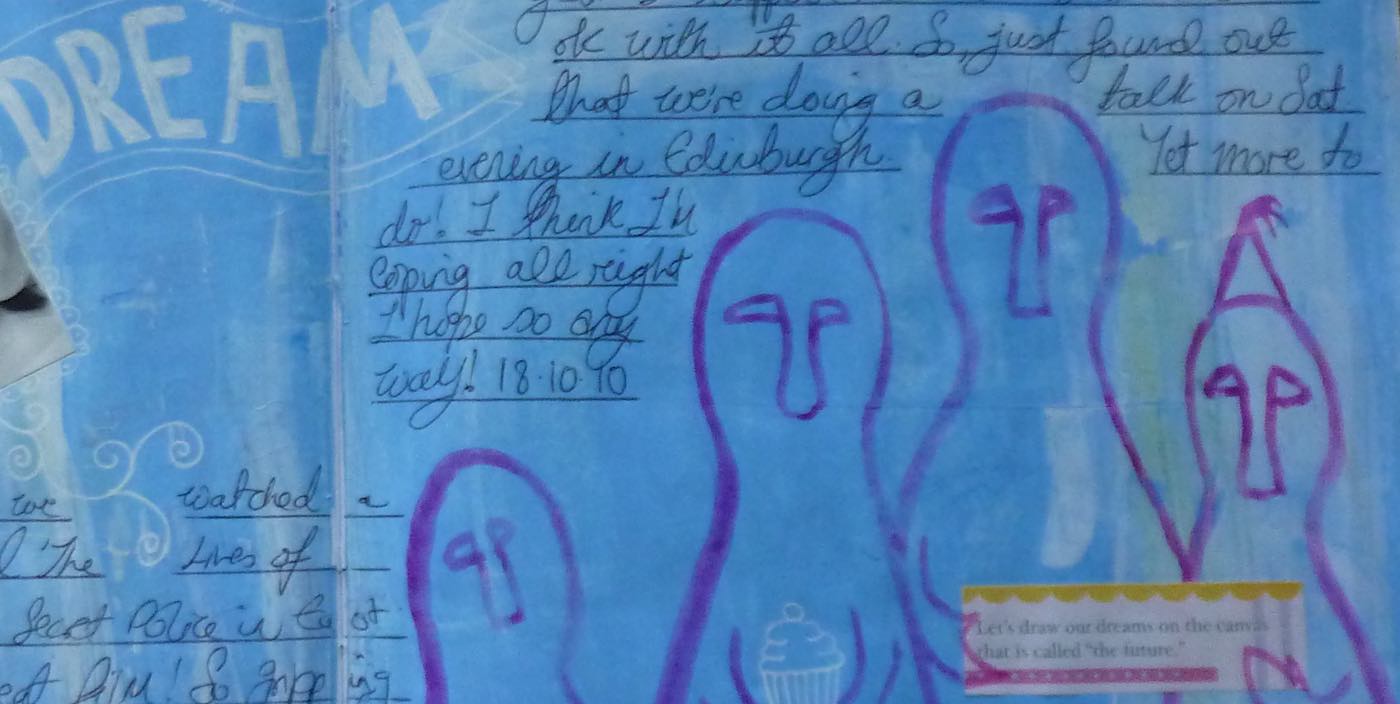 DREAM
ok with it all. So, just found out
that we're doing a talk on Sat
evening in Edinburgh. Yet more to
do! I think I'm
coping all right
I hope so any
way! 18.10.10
we watched a
'The Lives of
Secret Police in East
Film! So gripping
Let's draw our dreams on the canvas
that is called "the future."